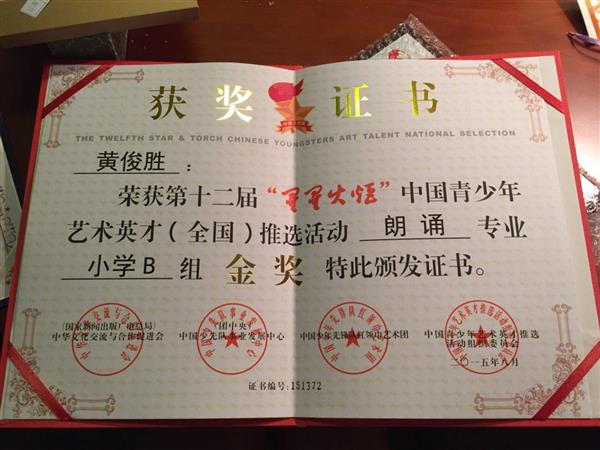 获奖证书
THE TWELFTH STAR & TORCH CHINESE YOUNGSTERS ART TALENT NATIONAL SELECTION
黄俊胜：
荣获第十二届“星星火炬”中国青少年
艺术英才（全国）推选活动 朗诵 专业
小学B 组 金奖 特此颁发证书。
(国家新闻出版广电总局)
中华文化交流与合作促进会
(团中央)
中国少先队事业发展中心
中国少年先锋队红领巾艺术团
中国青少年艺术英才推选
活动组织委员会
二〇一五年八月
证书编号:151372